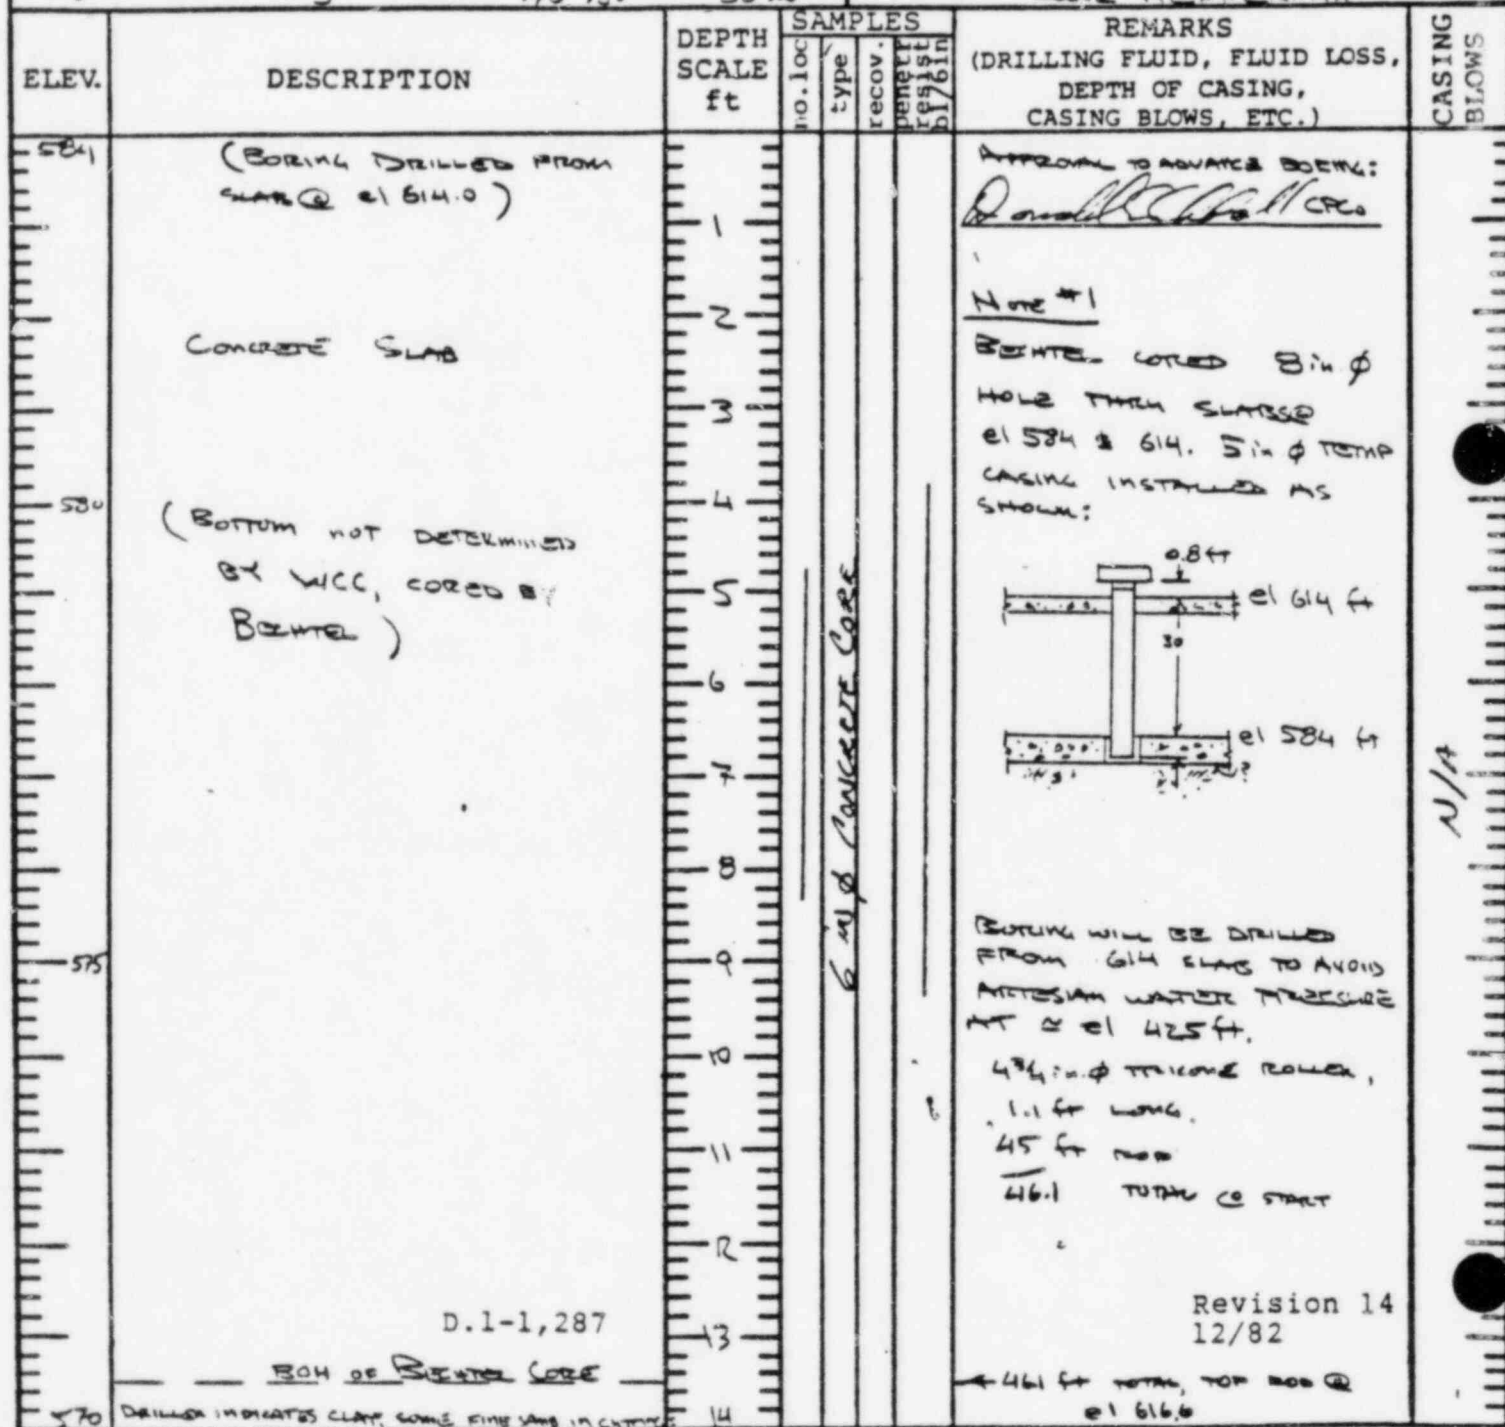 SAMPLES
ELEV.
DESCRIPTION
DEPTH
SCALE
ft
no.loc
type
recov.
penetr
resist
bl/6in
REMARKS
(DRILLING FLUID, FLUID LOSS,
DEPTH OF CASING,
CASING BLOWS, ETC.)
CASING
BLOWS
584
(BORING DRILLED FROM
SLAB @ el 614.0)
CONCRETE SLAB
580
(BOTTOM NOT DETERMINED
BY WCC, CORED BY
BECHTEL)
575
D.1-1,287
BOH OF BECHTEL CORE
570
DRILLER INDICATES CLAY, SOME FINE SAND IN CUTTINGS
1
2
3
4
5
6
7
8
9
10
11
12
13
14
6 in ø CONCRETE CORE
APPROVAL TO ADVANCE BORING:
CPCo
NOTE #1
BECHTEL CORED 8 in ø
HOLE THRU SLABS @
el 584 & 614. 5 in ø TEMP
CASING INSTALLED AS
SHOWN:
0.8 ft
el 614 ft
30
el 584 ft
?
BORING WILL BE DRILLED
FROM 614 SLAB TO AVOID
ARTESIAN WATER PRESSURE
AT ≃ el 425 ft.
4 3/4 in. ø TRICONE ROLLER,
1.1 ft LONG.
45 ft ROD
46.1 TOTAL @ START
Revision 14
12/82
46.1 ft TOTAL, TOP ROD @
el 616.6
N/A